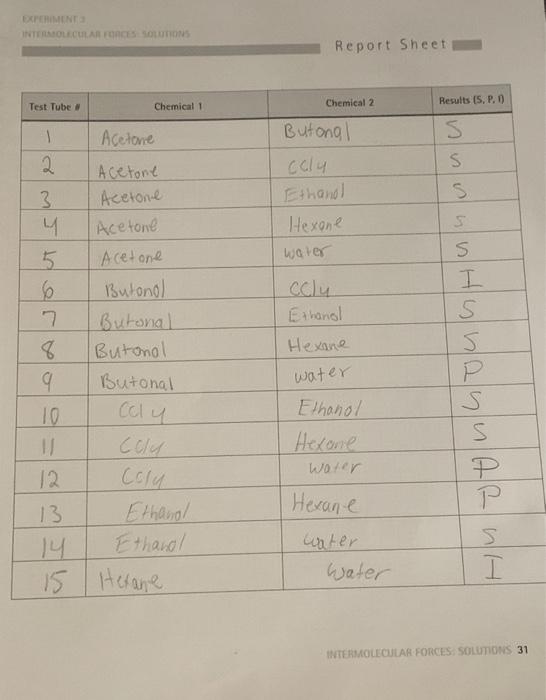 EXPERIMENT 3
INTERMOLECULAR FORCES: SOLUTIONS
Report Sheet
Test Tube # Chemical 1 Chemical 2 Results (S, P, I)
1 Acetone Butonal S
2 Acetone CCl4 S
3 Acetone Ethanol S
4 Acetone Hexane S
5 Acetone water S
6 Butonol CCl4 I
7 Butonal Ethanol S
8 Butonol Hexane S
9 Butonal water P
10 CCl4 Ethanol S
11 CCl4 Hexane S
12 CCl4 Water P
13 Ethanol Hexane P
14 Ethanol Water S
15 Hexane Water I
INTERMOLECULAR FORCES: SOLUTIONS 31